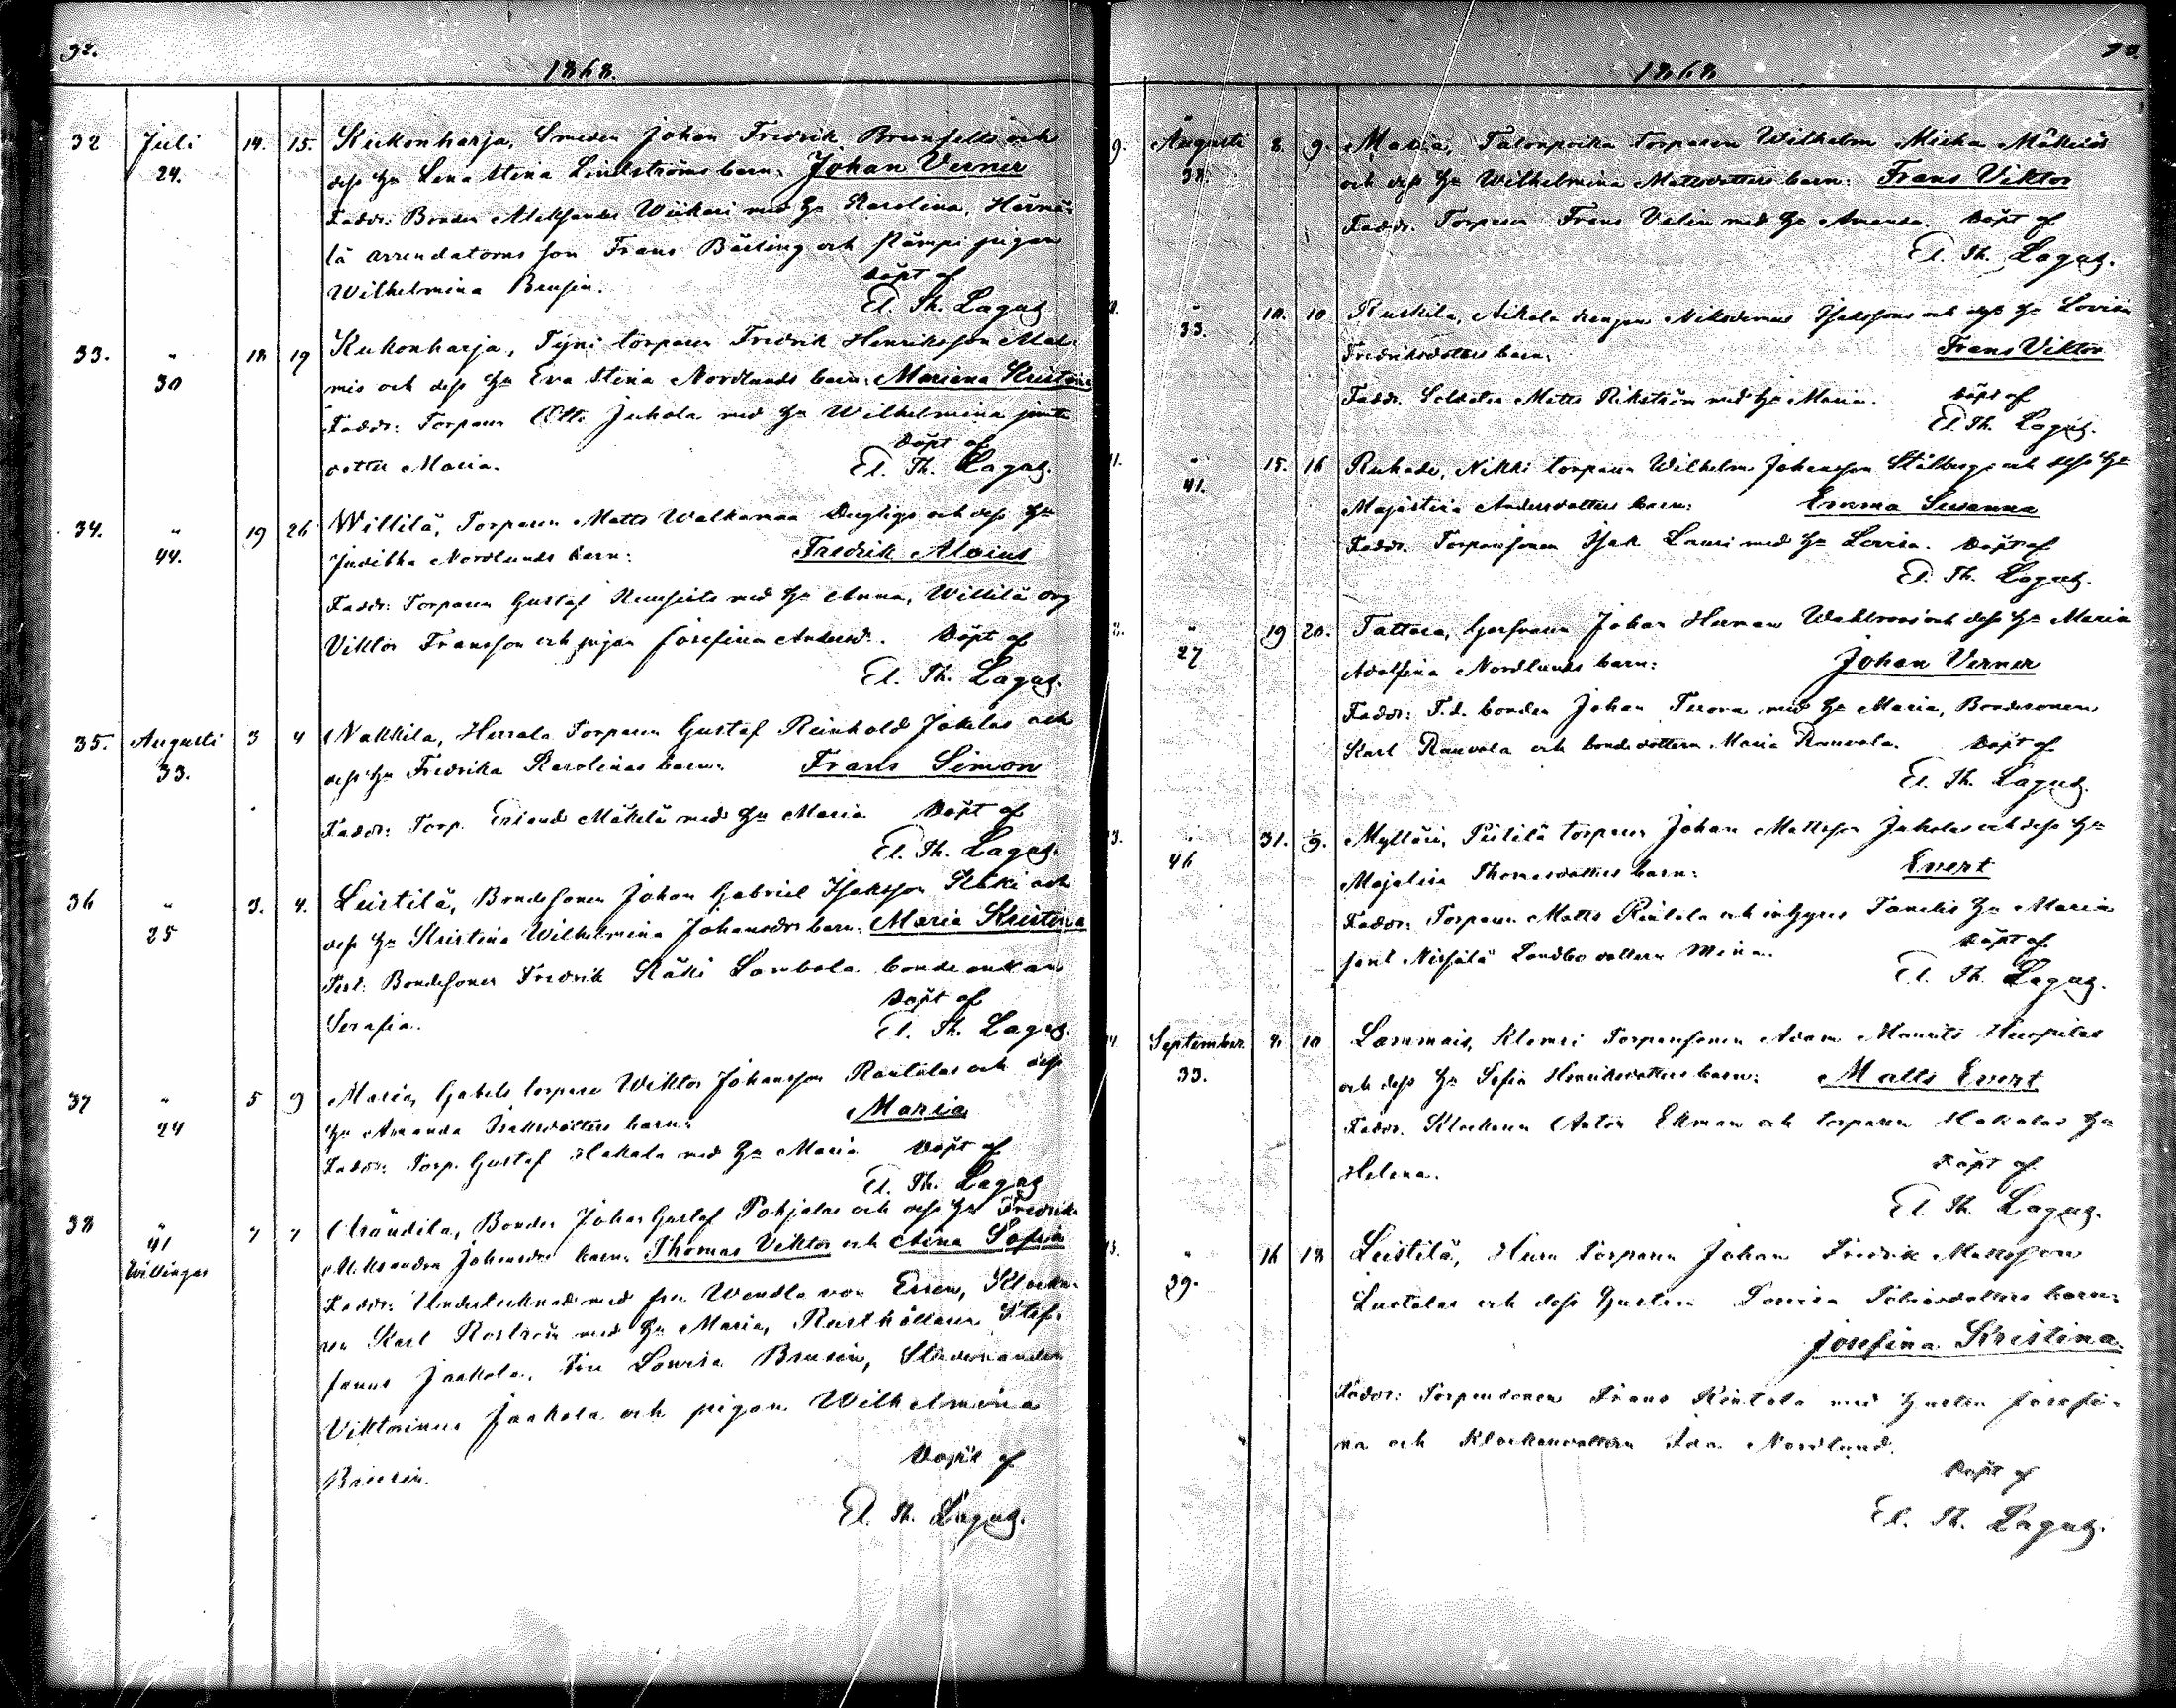 32.
1868.
32 Juli 14. 15. Kukonharja, Smeden Johan Fredrik Brunfelts och
24. dess hu Lena Stina Lindströms barn: Johan Verner
Faddr: Bonden Aleksander Wiikari med hu Karolina, Härmä-
lä arrendatorns son Frans Bärling och Kämpi pigan
Wilhelmina Brusin. Döpt af
El. Th. Lagus.
33. " 18 19 Kukonharja, Tyni torparen Fredrik Henriksson
30 och dess hu Eva Stina Nordlunds barn: Mariana Kristina
Faddr: Torparen Otto Juhola med hu Wilhelmina jemte
dotter Maria. Döpt af
El. Th. Lagus.
34. " 19 26 Willilä, Torparen Matts Walkamaa Duglig och dess hu
44. Juditha Nordlunds barn: Fredrik Aloius
Faddr: Torparen Gustaf med hu Anna, Willilä
Viktor Fransson och pigan Josefina Andersd. Döpt af
El. Th. Lagus.
35. Augusti 3 4 Nakkila, Herrala Torparen Gustaf Reinhold Jokelas och
33. dess hu Fredrika Karolinas barn: Frans Simon
Faddr: Torp. Erland Mäkelä med hu Maria Döpt af
El. Th. Lagus.
36 " 3. 4. Leistilä, Bondesonen Johan Gabriel Isaksson Käki och
25 dess hu Kristina Wilhelmina Johansdrs barn: Maria Kristina
Test: Bondesonen Fredrik Käki Lambola bondeenkan
Serafia. Döpt af
El. Th. Lagus.
37 " 5 9 Maria, Gabels torpare Wiktor Johansson Rantalas och dess
24 hu Amanda Isaksdotters barn: Maria
Faddr: Torp. Gustaf Hakala med hu Maria Döpt af
El. Th. Lagus
38 " 7 7 Arändila, Bonden Johan Gustaf Pohjalas och dess hu Fredrika
41 Aleksandra Johansdrs barn: Thomas Viktor och Aina Sofia
tvillingar
Faddr: Undertecknad med fru Wendla von Essen, Klocka-
ren Karl Roström med hu Maria, Rusthållaren Stef-
fanus Jaakola, Fru Lovisa Brusin, Studeranden
Viktorinus Jaakola och pigan Wilhelmina
Brusin. Döpt af
El. Th. Lagus.
1868
9. Augusti 8. 9. Maria, Talonpoika torparen Wilhelm Miska Mäkeläs
38. och dess hu Wilhelmina Mattsdotters barn: Frans Viktor
Faddr. Torparen Frans Valin med hu Amanda. Döpt af
El. Th. Lagus.
" 10. 10 Ruskila, Aikala drengens Nikodemus Isakssons och dess hu Lovisa
33. Fredriksdotters barn: Frans Viktor
Faddr. Soldaten Matts Rikström med hu Maria. Döpt af
El. Th. Lagus.
1. " 15. 16 Ruhade, Nikki torparen Wilhelm Johansson Stålbergs och dess hu
41. Majastina Andersdotters barn: Emma Susanna
Faddr. Torparsonen Isak Lauri med hu Lovisa. Döpt af
El. Th. Lagus.
" 19 20. Tattara, Johan Herman Wahlroos och dess hu Maria
27 Adolfina Nordlunds barn: Johan Verner
Faddr: F.d. bonden Johan Terova med hu Maria, Bondesonen
Karl Rauvola och bondedottern Maria Rauvola. Döpt af
El. Th. Lagus.
3. " 31. 1/9. Mylläri, Piitilä torparen Johan Mattsson Juholas och dess hu
46 Majalisa Thomasdotters barn: Evert
Faddr: Torparen Matts Rintala och inhyses Tamelis hu Maria
samt Landbo dottern Mina. Döpt af
El. Th. Lagus.
September 7. 10 Lammais, Klemri Torparsonen Adam Maurits
33. och dess hu Sofia Henriksdotters barn: Matts Evert
Faddr. Klockaren Anton Ekman och torparen Hakalas hu
Helena. Döpt af
El. Th. Lagus.
" 16 18 Leistilä, Huru Torparen Johan Fredrik Mattsson
39. Luotolas och dess hustru Lovisa barn:
Josefina Kristina
Faddr: Torparsonen Frans Rintala med hustru Josefi-
na och Klockaredottern Ida Nordlund.
Döpt af
El. Th. Lagus.